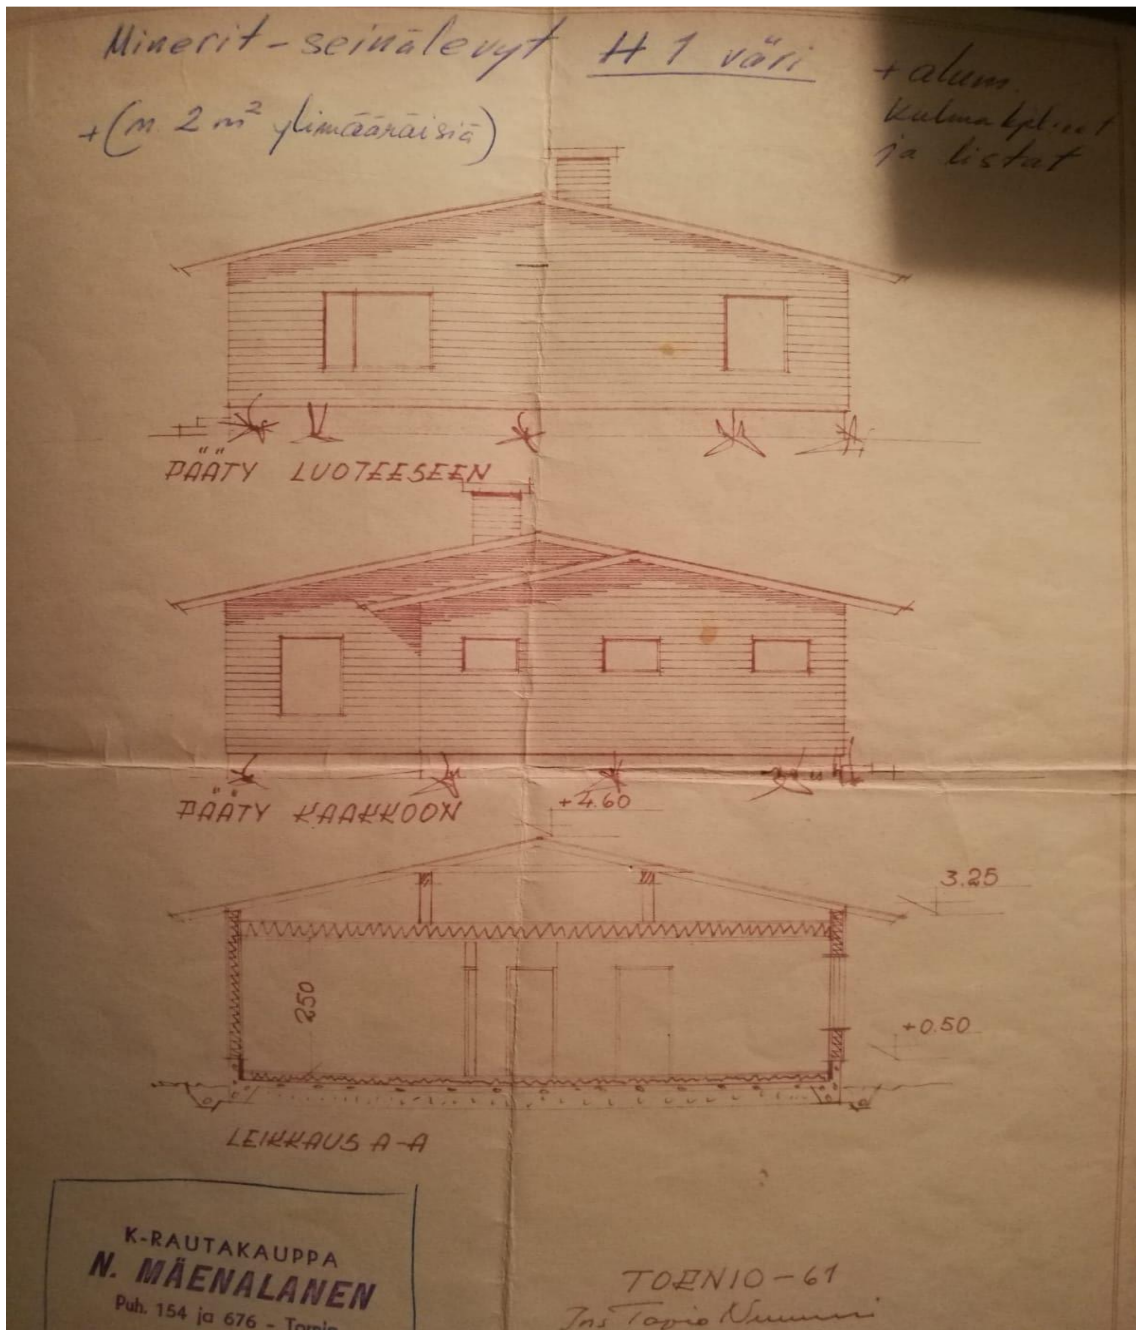 Minerit-seinälevyt H 1 väri
+ alum.
+ (n. 2 m² ylimääräisiä)
ja listat
PÄÄTY LUOTEESEEN
PÄÄTY KAAKKOON
+4.60
3.25
250
+0.50
LEIKKAUS A-A
K-RAUTAKAUPPA
N. MÄENALANEN
Puh. 154 ja 676 - Tornio
TORNIO-61
Ins Tapio